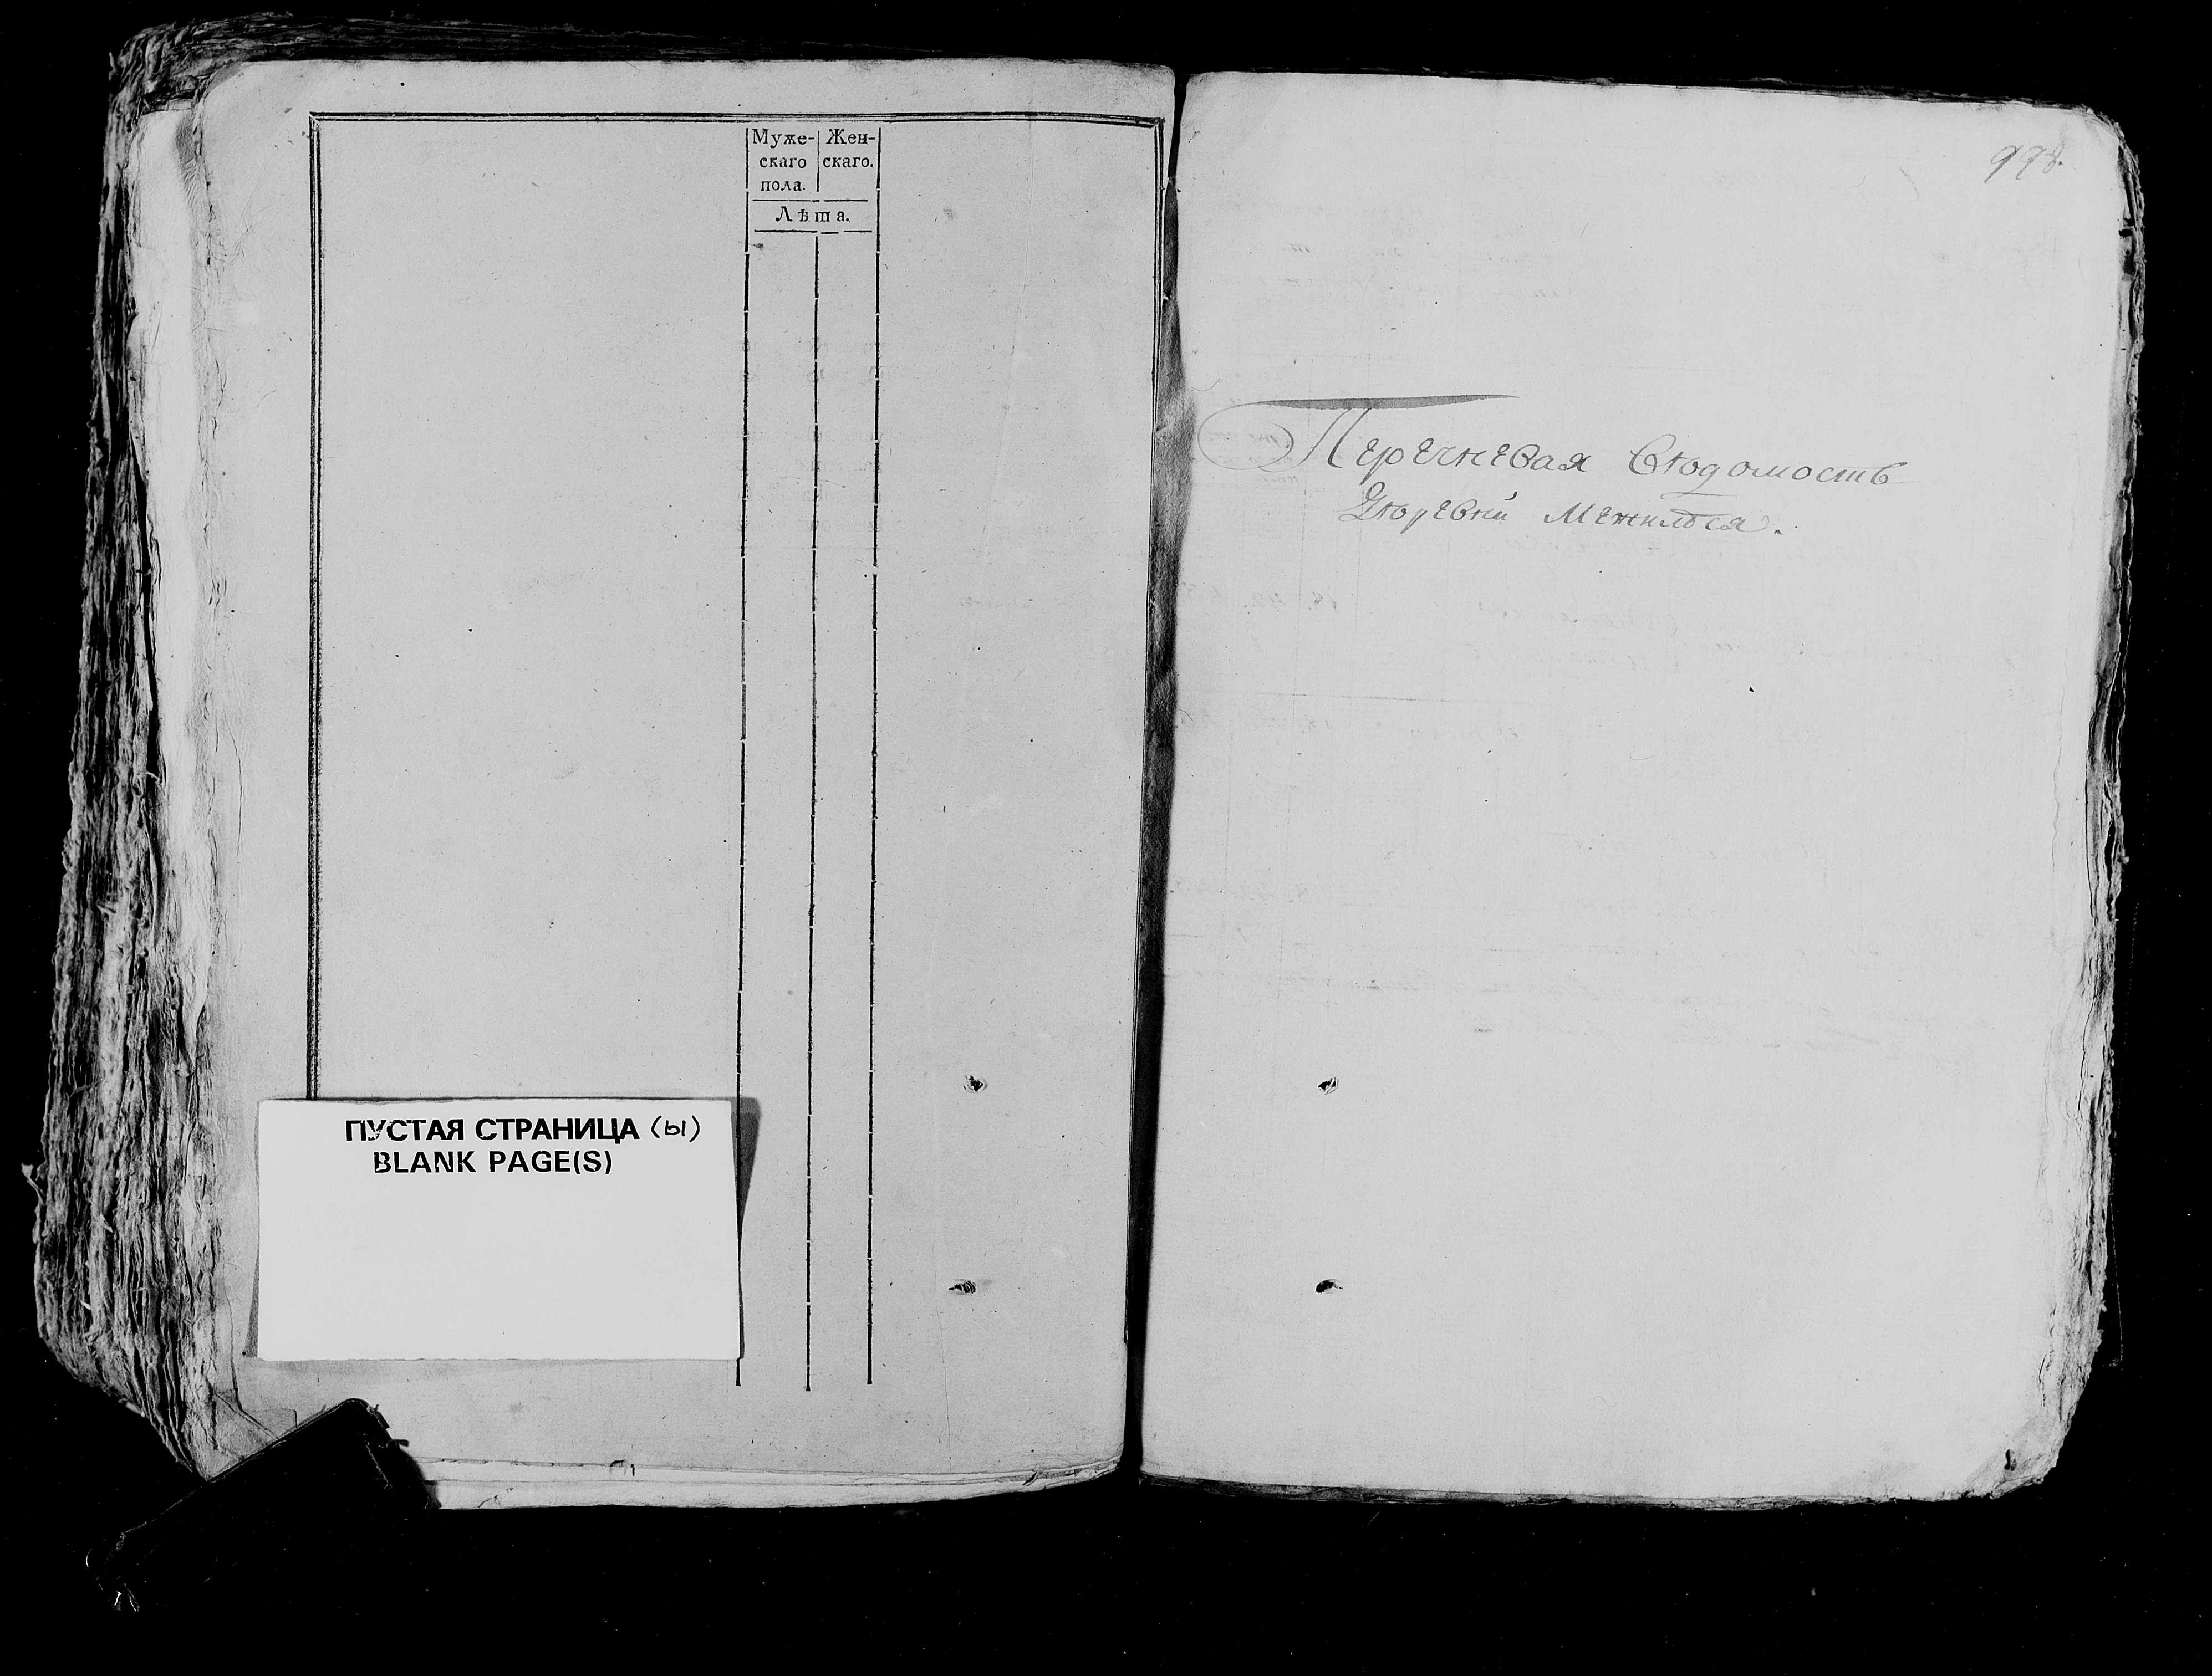 Муже-
скаго
пола.
Жен-
скаго.
Лѣта.
ПУСТАЯ СТРАНИЦА (ы)
BLANK PAGE(S)
998.
Перечневая Вѣдомость
Деревни Межилѣся.